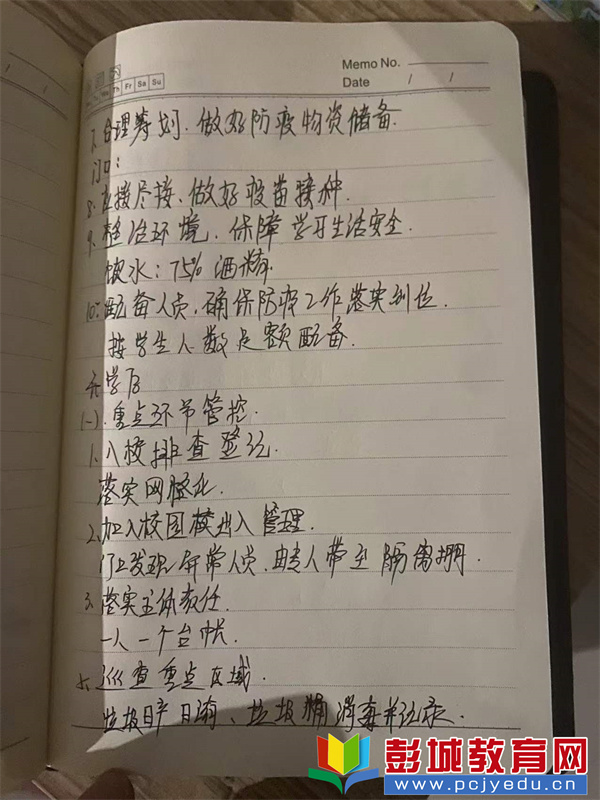 Memo No.
Th Fr Sa Su
Date / /
7、合理筹划、做好防疫物资储备.
门口:
8、应接尽接、做好疫苗接种.
9、整治环境、保障学习生活安全.
饮水: 75% 酒精
10、配备人员、确保防疫工作落实到位.
按学生人数足额配备.
开学后
(一).重点环节管控.
1、入校排查登记.
落实网格化
2、加入校园校出入管理.
门卫发现异常人员、由专人带至隔离棚.
3、落实主体责任.
一人一个台帐.
巡查重点区域.
垃圾日产日清、垃圾桶消毒并记录.
彭城教育网
www.pcjyedu.cn